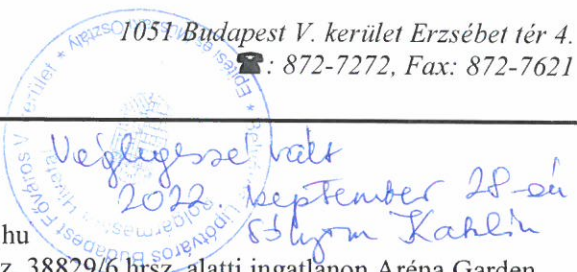 1051 Budapest V. kerület Erzsébet tér 4.
☎: 872-7272, Fax: 872-7621
Véglegessé vált
2022. september 28-án
Sólyom Katalin
hu
sz. 38829/6 hrsz. alatti ingatlanon Aréna Garden